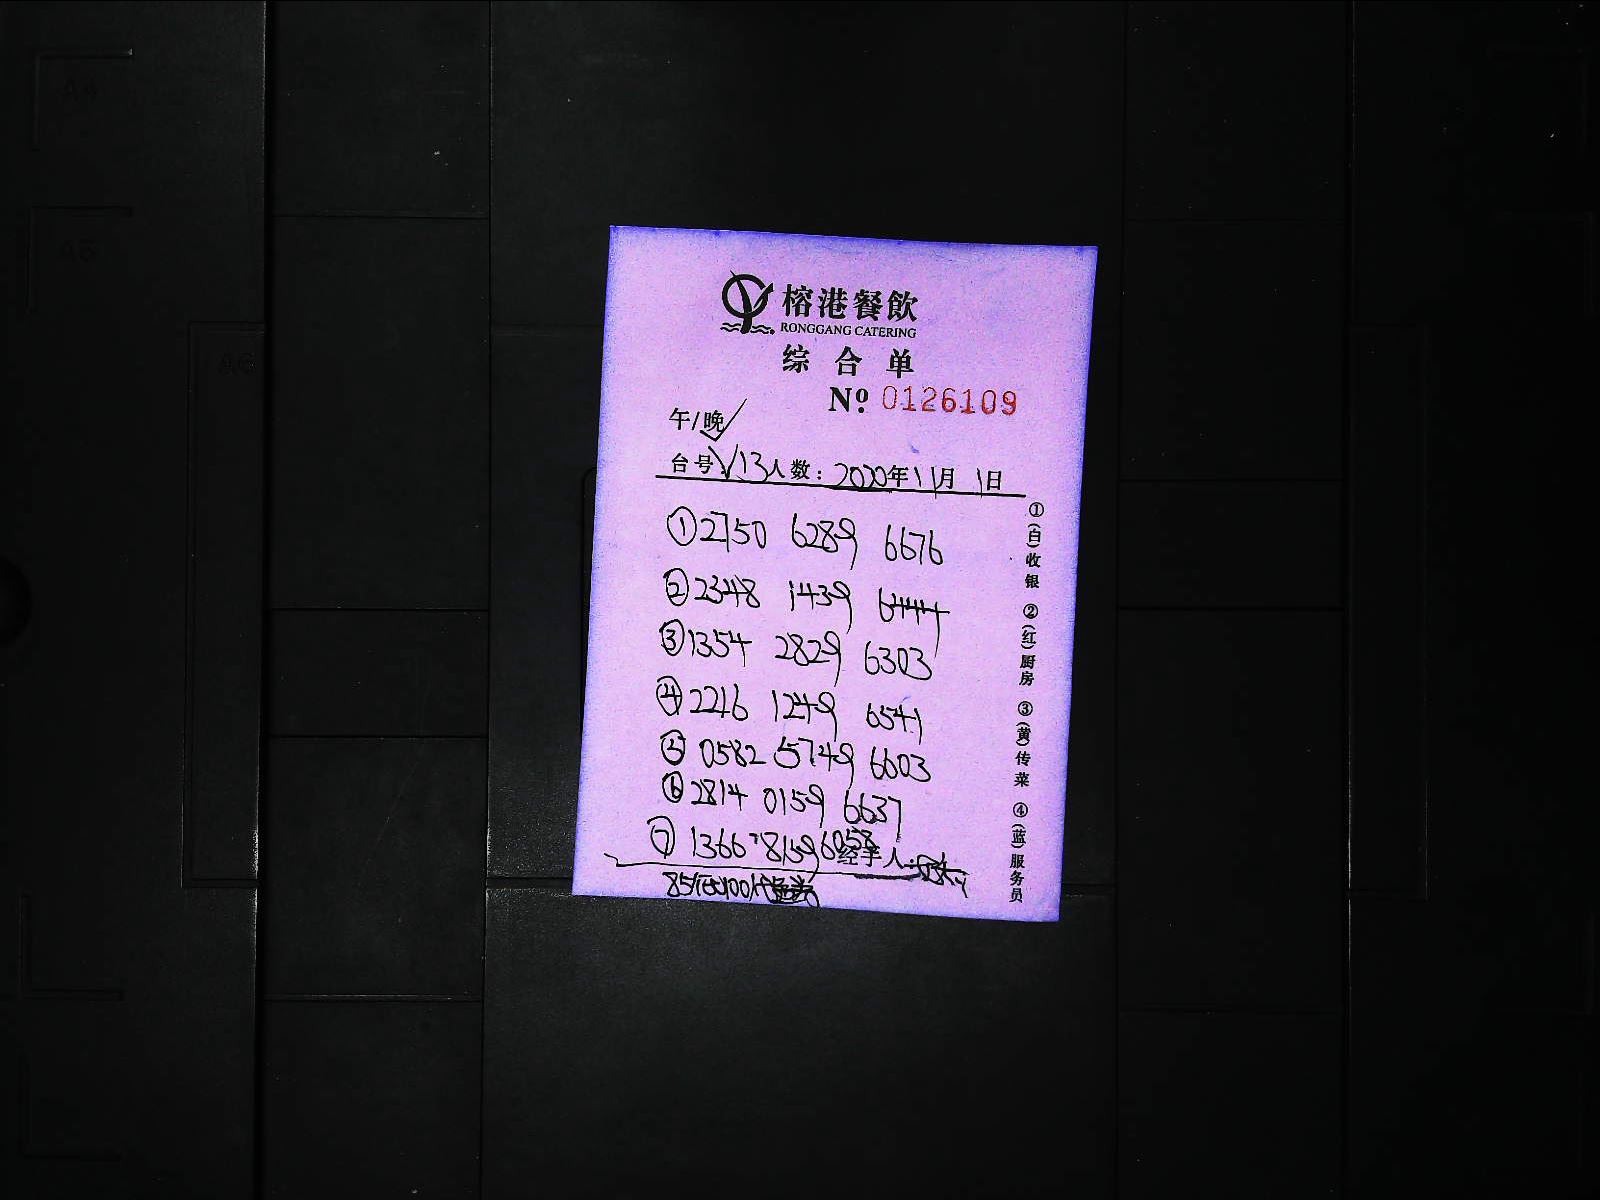 榕港餐飲
RONGGANG CATERING
综合单
Nº 0126109
午/晚√
台号:V13人数: 2020年11月1日
①2750 6289 6676
②2348 1439 6444
③1354 2829 6303
④2216 1249 6541
⑤0582 5749 6603
⑥2814 0159 6637
⑦1366 8159 6058
经手人:
①(白)收银 ②(红)厨房 ③(黄)传菜 ④(蓝)服务员